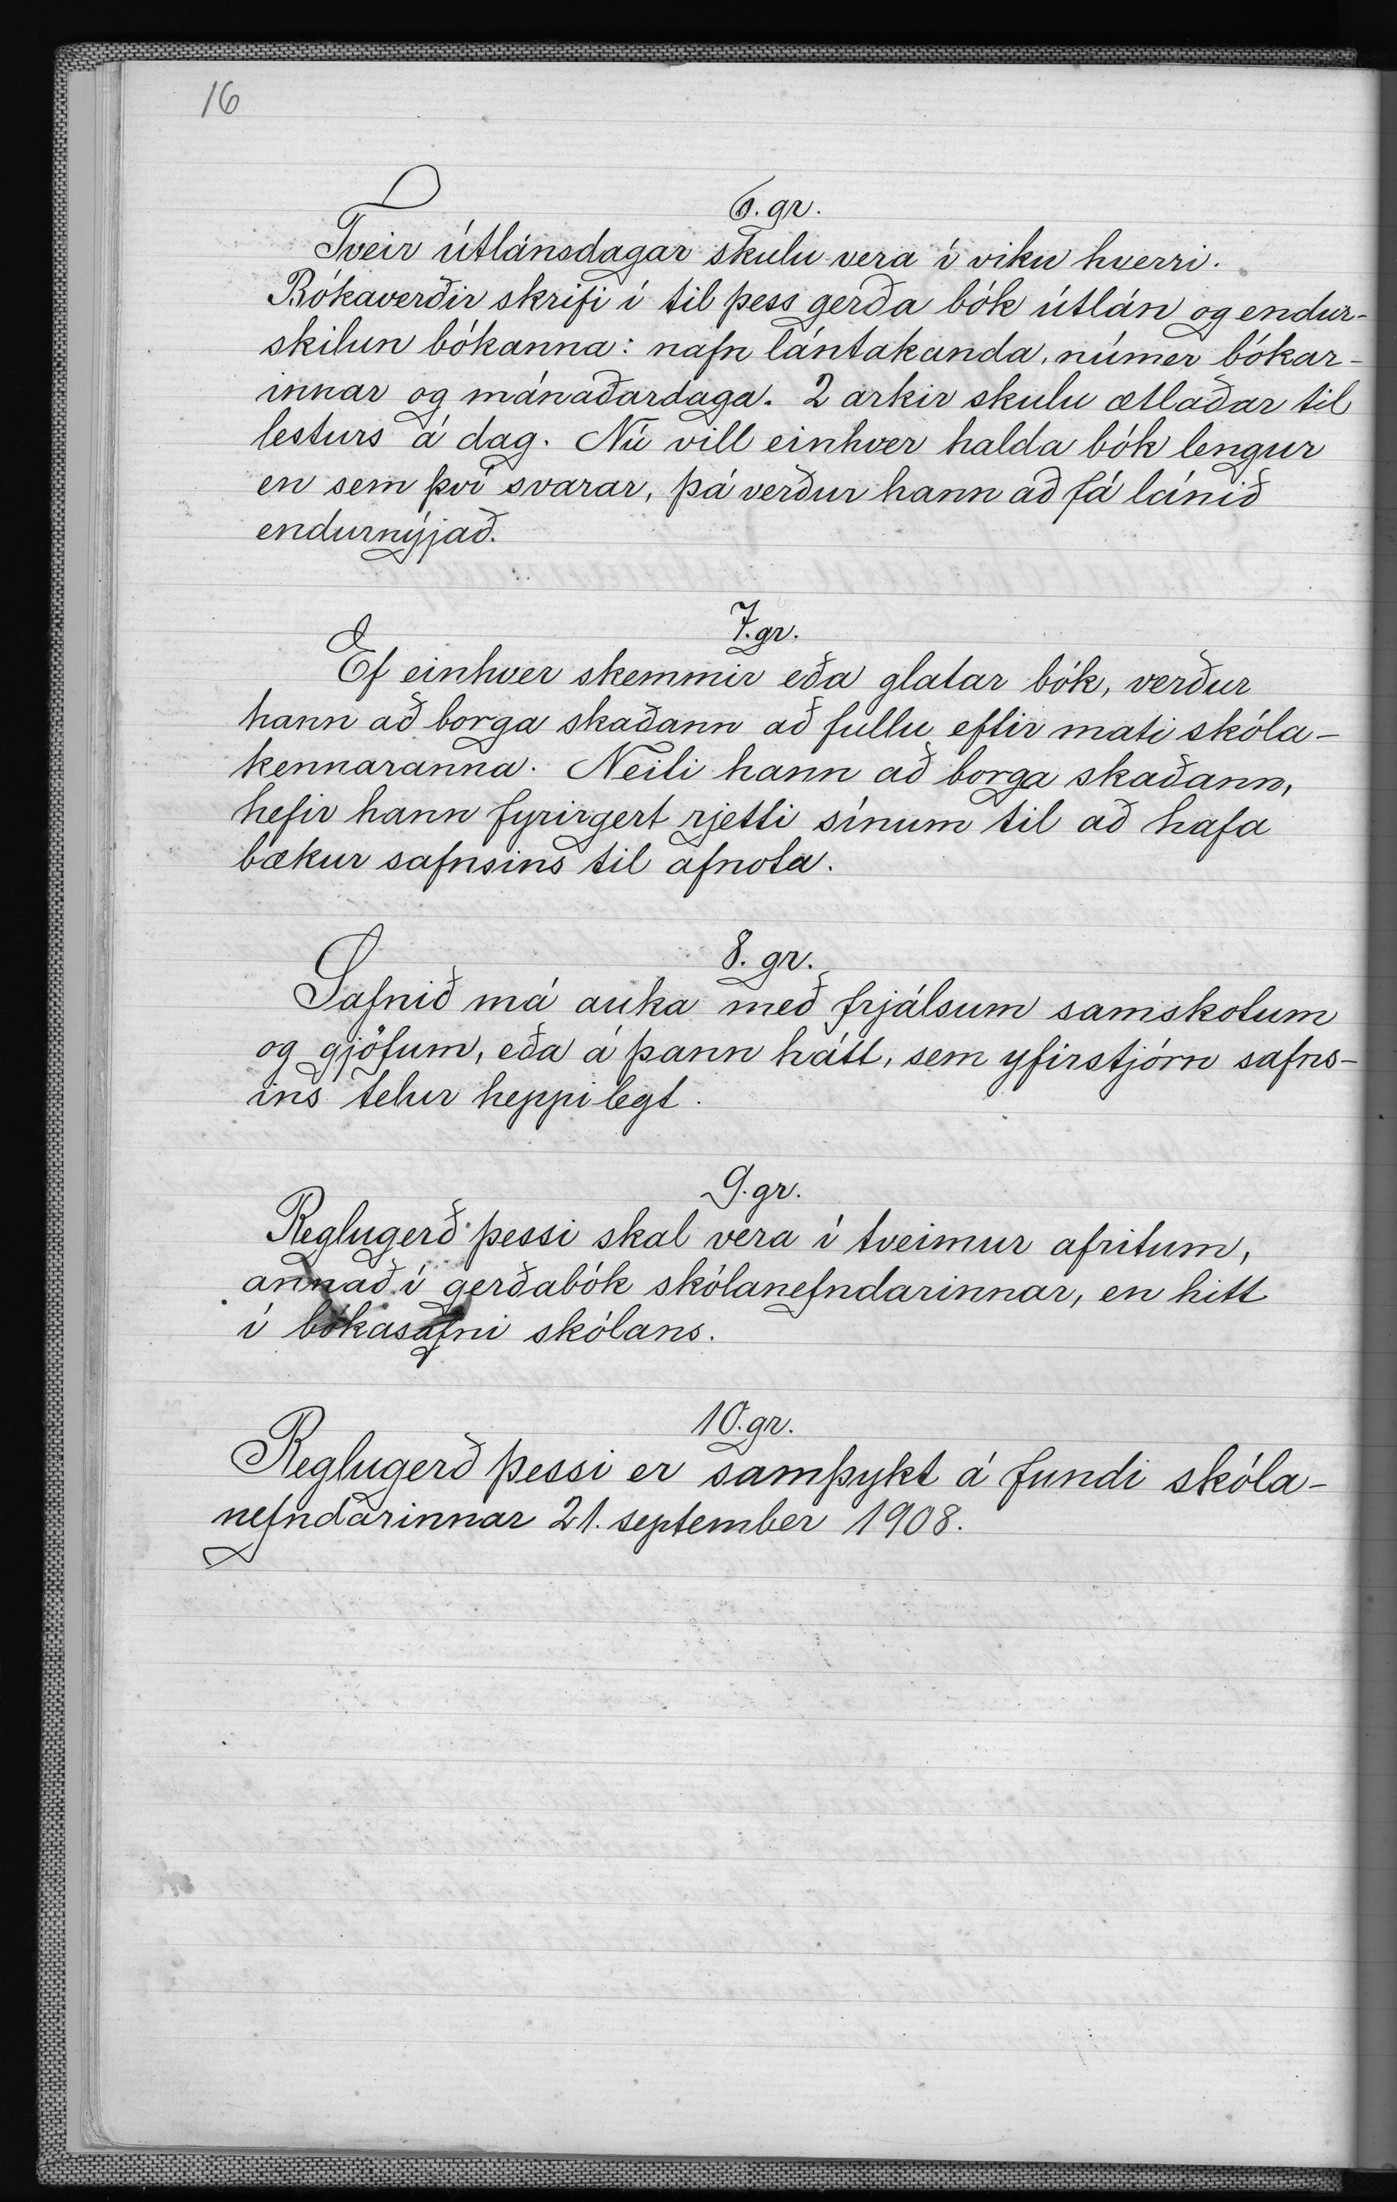 16
6. gr.
Tveir útlánsdagar skulu vera í viku hverri.
Bókaverðir skrifi í til þess gerða bók útlán og endur-
skilun bókanna: nafn lántakanda, númer bókar-
innar og mánaðardaga. 2 arkir skulu ætlaðar til
lesturs á dag. Nú vill einhver halda bók lengur
en sem því svarar, þá verður hann að fá lánið
endurnýjað.
7. gr.
Ef einhver skemmir eða glatar bók, verður
hann að borga skaðann að fullu eftir mati skóla-
kennaranna. Neiti hann að borga skaðann,
hefir hann fyrirgert rjetti sínum til að hafa
bækur safnsins til afnota.
8. gr.
Safnið má auka með frjálsum samskotum
og gjöfum, eða á þann hátt, sem yfirstjórn safns-
ins telur heppilegt.
9. gr.
Reglugerð þessi skal vera í tveimur afritum,
annað í gerðabók skólanefndarinnar, en hitt
í bókasafni skólans.
10. gr.
Reglugerð þessi er samþykt á fundi skóla-
nefndarinnar 21. september 1908.